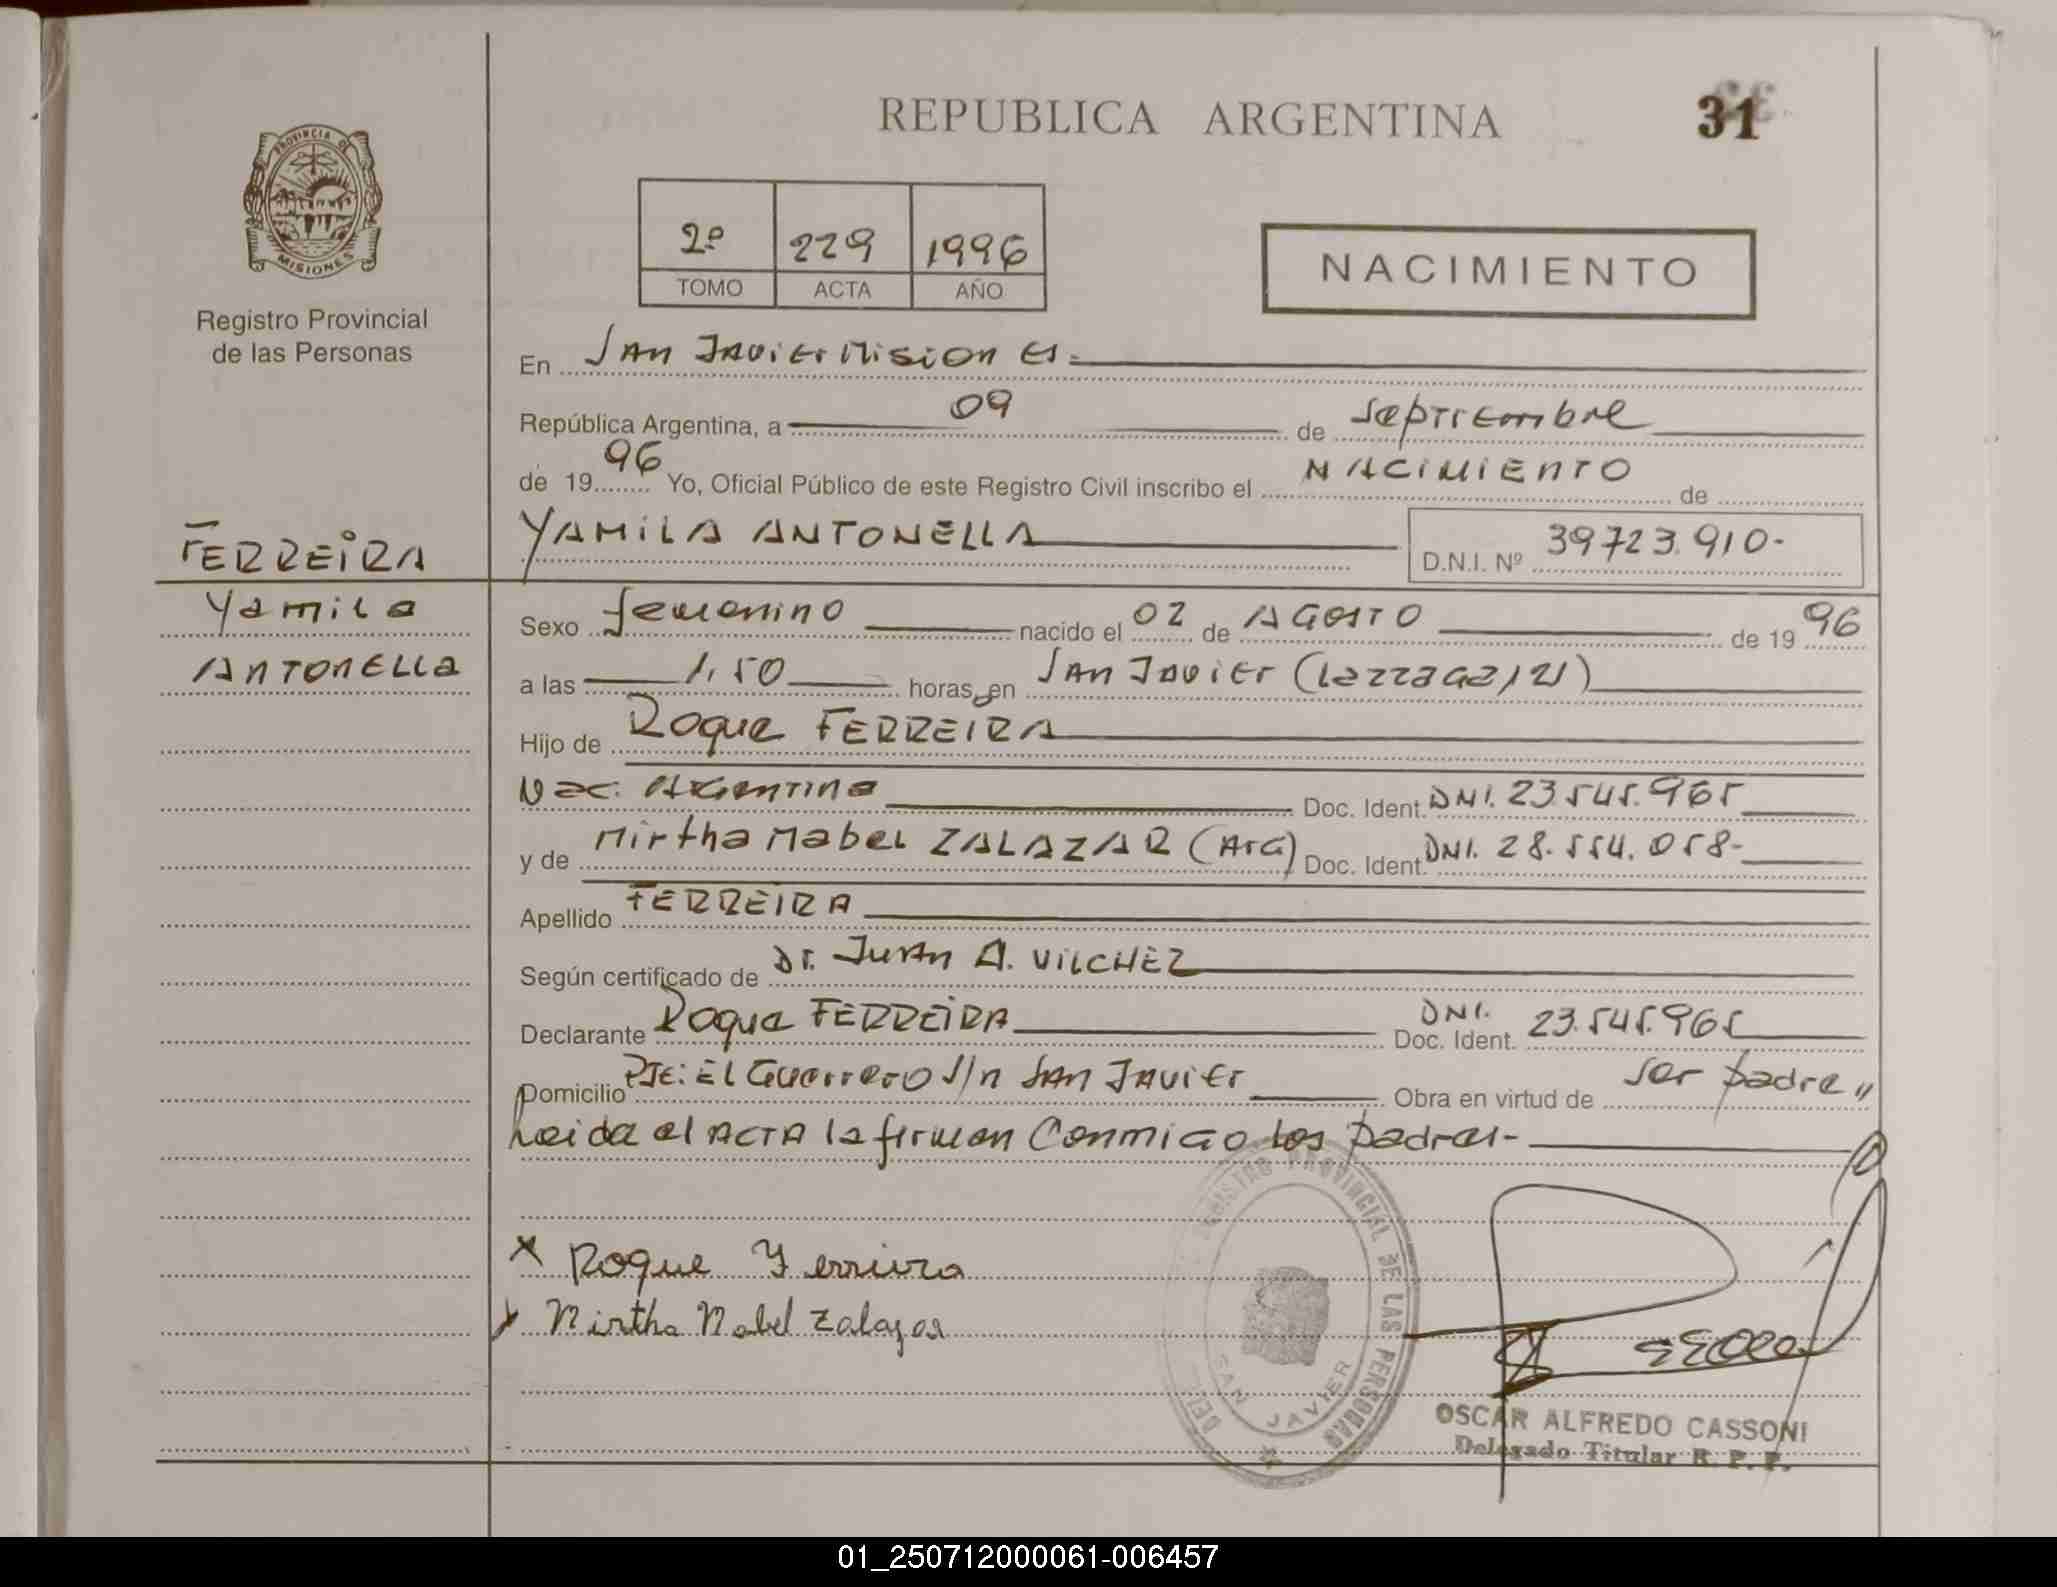 REPUBLICA ARGENTINA
31
PROVINCIA DE
MISIONES
Registro Provincial
de las Personas
2º 229 1996
TOMO ACTA AÑO
NACIMIENTO
En San Javier Misiones.
República Argentina, a 09 de septiembre
de 1996 Yo, Oficial Público de este Registro Civil inscribo el NACIMIENTO de
YAMILA ANTONELLA D.N.I. Nº 39723.910-
FERREIRA
Yamila
Antonella
Sexo femenino nacido el 02 de AGOSTO de 1996
a las 1,50 horas, en San Javier
Hijo de Roque FERREIRA
Nac. Argentina Doc. Ident. DNI. 23.545.965
y de Mirtha Mabel ZALAZAR (Arg) Doc. Ident. DNI. 28.554.058-
Apellido FERREIRA
Según certificado de Dr. Juan A. VILCHEZ
Declarante Roque FERREIRA DNI. Doc. Ident. 23.545.965
Domicilio Pje: El Guerrero S/n San Javier Obra en virtud de ser padre"
Leida el ACTA la firman Conmigo los padres-
x Roque Ferreira
x Mirtha Mabel Zalazar
REGISTRO PROVINCIAL DE LAS PERSONAS
SAN JAVIER
OSCAR ALFREDO CASSONI
Delegado Titular R. P. P.
01_250712000061-006457